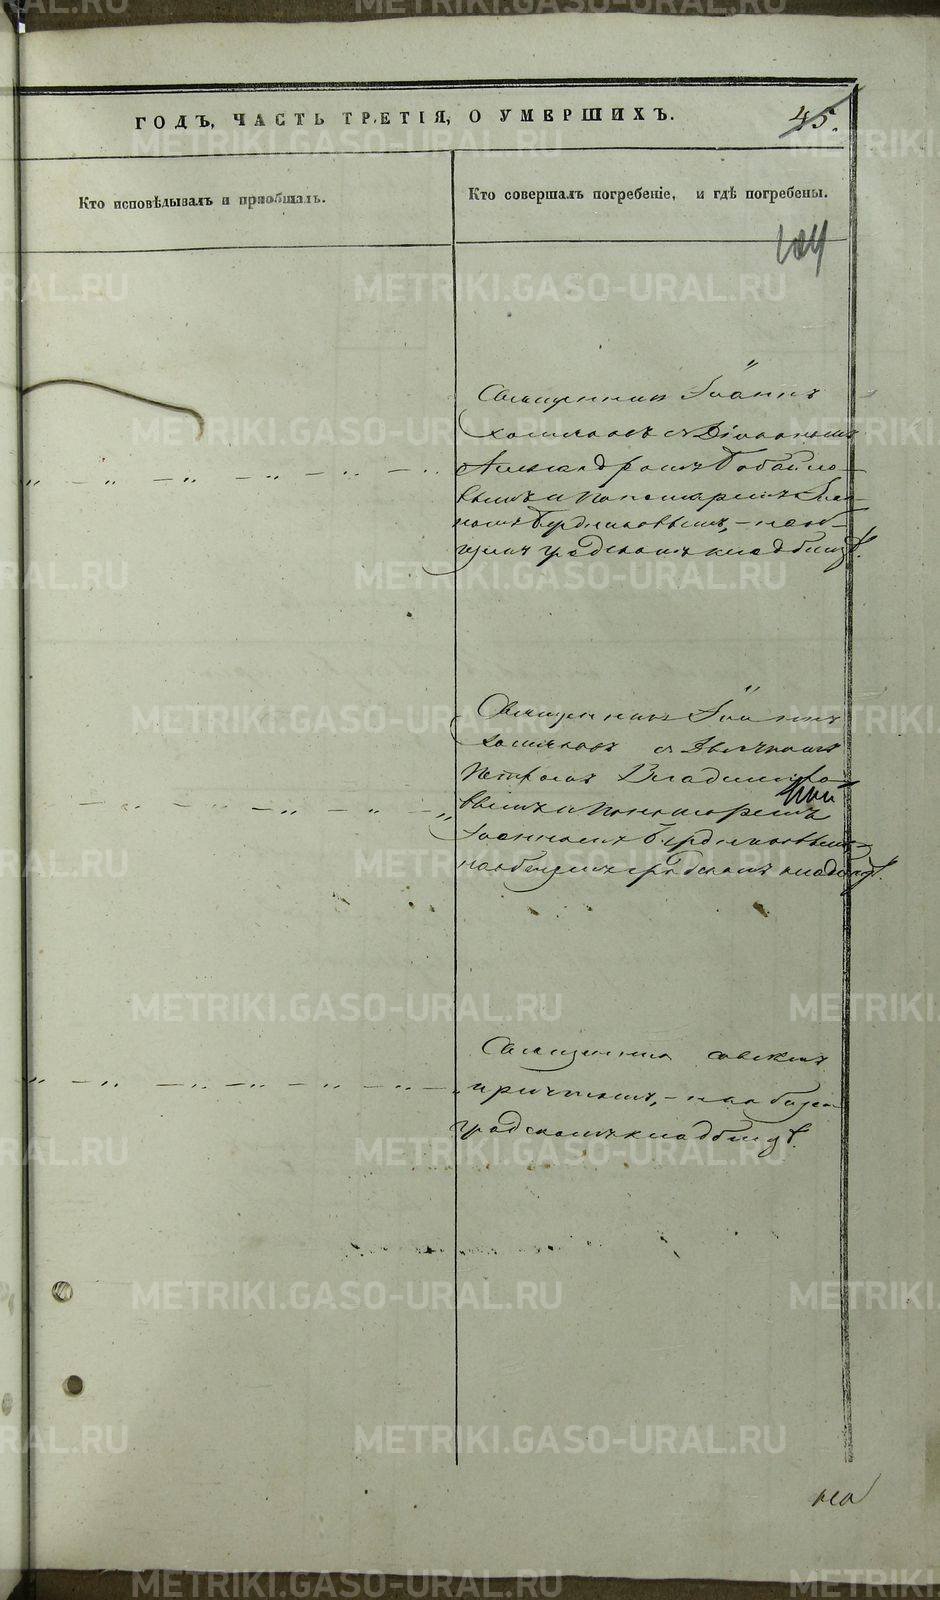 ГОДЪ, ЧАСТЬ ТРЕТІЯ, О УМЕРШИХЪ.
45.
Кто исповѣдывалъ и пріобщалъ.
Кто совершалъ погребеніе, и гдѣ погребены.
104
Священникъ Іоаннъ
Хомяковъ съ Діакономъ
Александромъ
вымъ и Пономаремъ Іоан-
номъ Бердниковымъ, - на об-
щемъ градскомъ кладбищѣ.
Священникъ Іоаннъ
Хомяковъ съ Дьячкомъ
Петромъ Владиміро-
вымъ и Пономаремъ
Іоанномъ Бердниковымъ,
на общемъ градскомъ кладбищѣ.
Священникъ
причтомъ, - на общемъ
градскомъ кладбищѣ.
METRIKI.GASO-URAL.RU